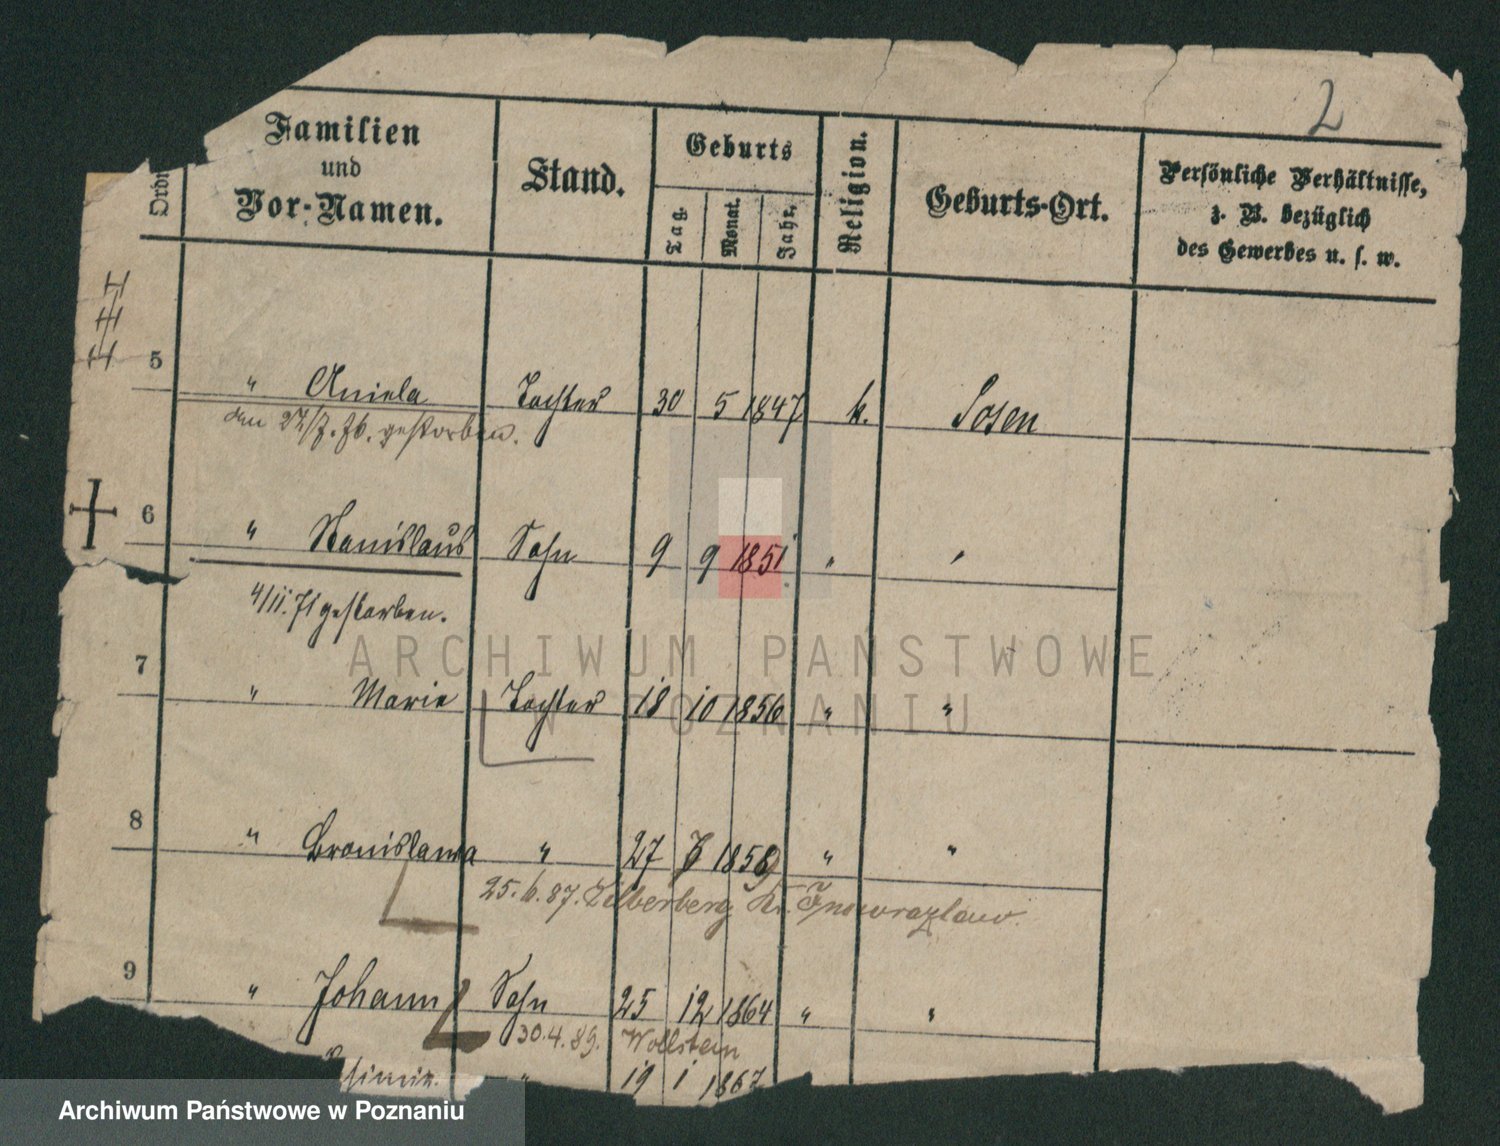 2
Familien und Vor-Namen. Stand. Geburts Tag. Monat. Jahr, Religion. Geburts-Ort. Persönliche Verhältnisse, z. B. bezüglich des Gewerbes u. s. w.
5 " Aniela Tochter 30 5 1847 k. Posen
den gestorben.
6 " Stanislaus Sohn 9 9 1851 " "
4/11. 71 gestorben.
7 " Marie Tochter 18 10 1856 " "
8 " Bronislawa " 27 8 1859 " "
25. 6. 87. Silberberg Kr. Inowrazlaw.
9 " Johann Sohn 25 12 1864 " "
30.4.89. Wollstein
" 19 1 1867
ARCHIWUM PAŃSTWOWE
W POZNANIU
Archiwum Państwowe w Poznaniu